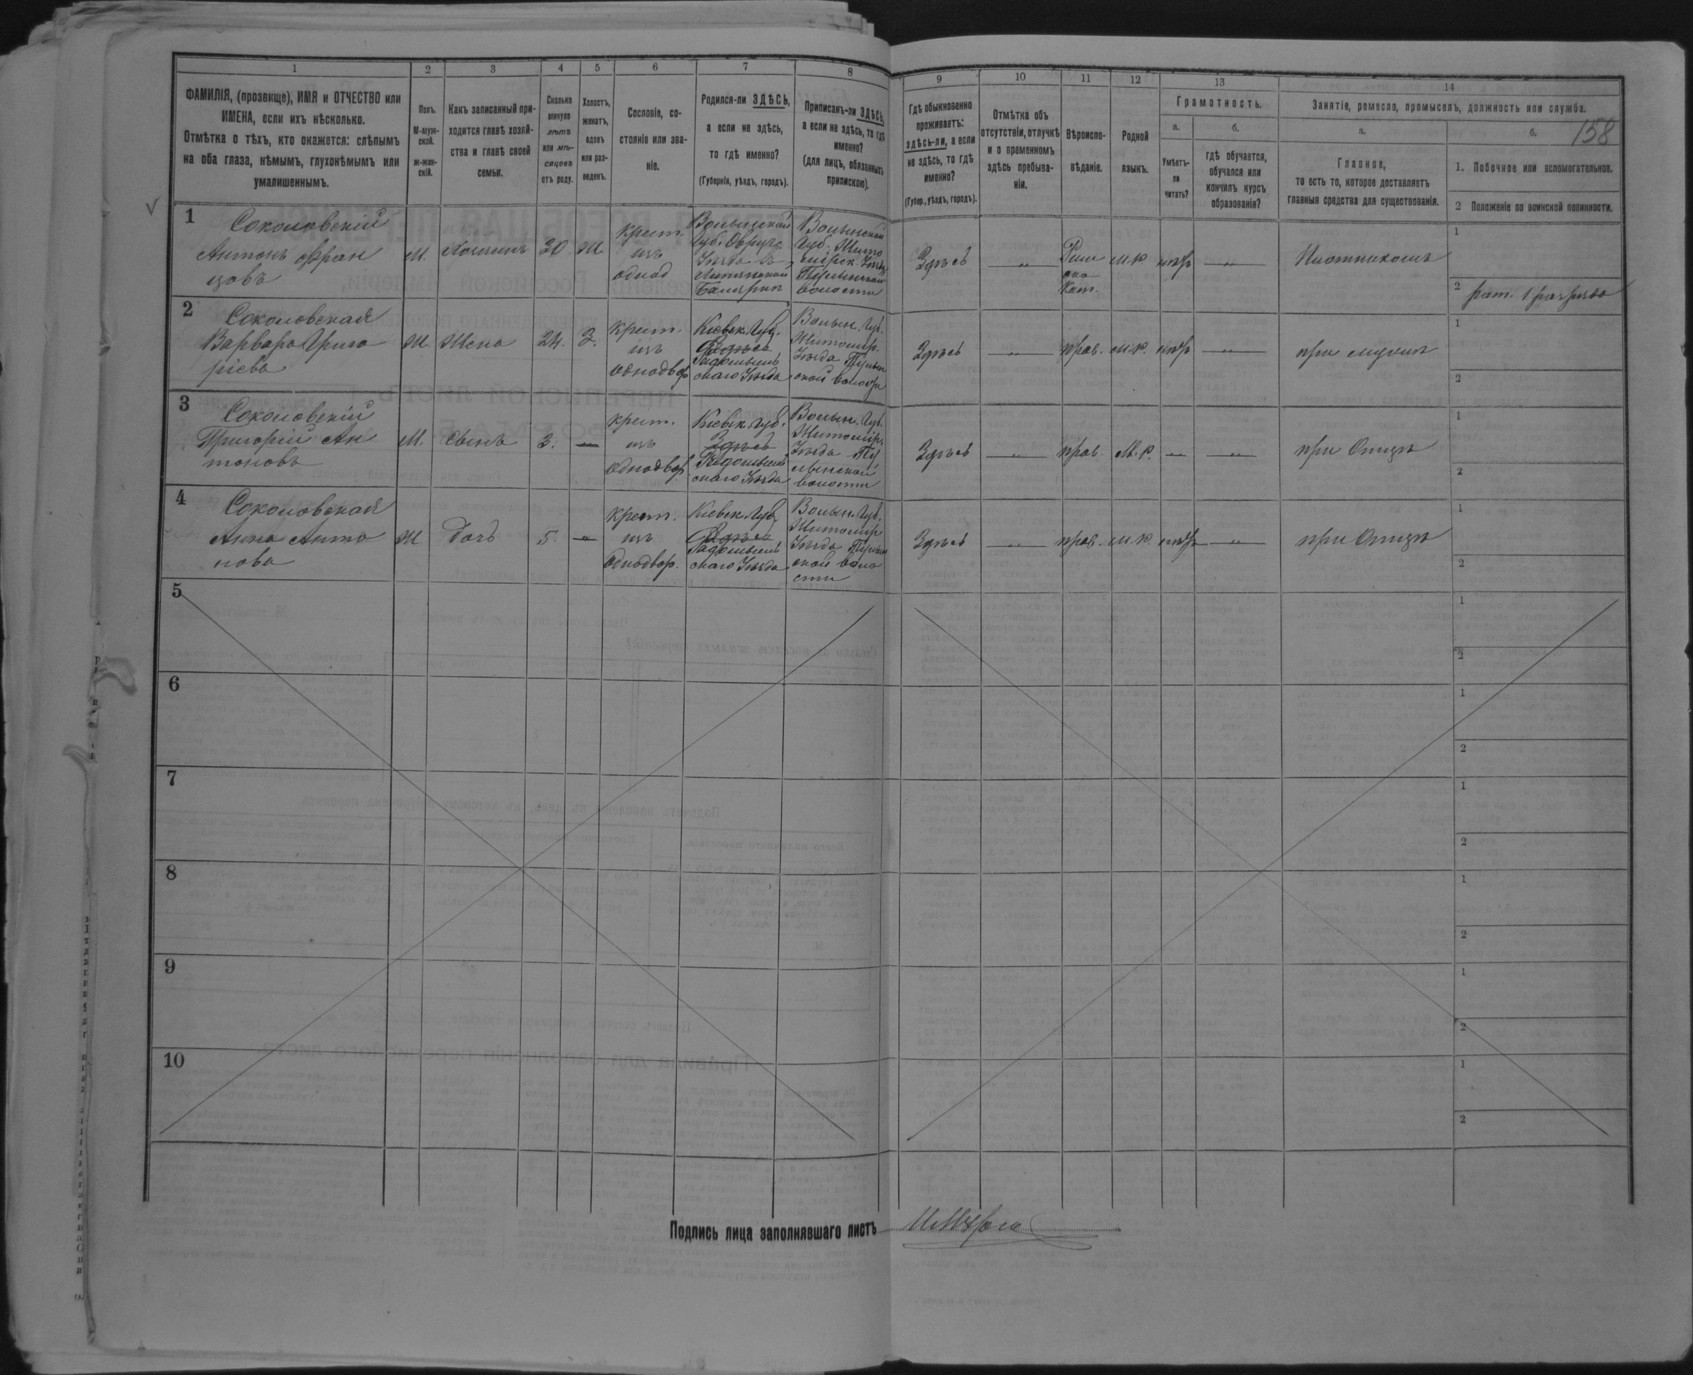 1 2 3 4 5 6 7 8 9 10 11 12 13 14
ФАМИЛІЯ, (прозвище), ИМЯ и ОТЧЕСТВО или
ИМЕНА, если ихъ нѣсколько.
Отмѣтка о тѣхъ, кто окажется: слѣпымъ
на оба глаза, нѣмымъ, глухонѣмымъ или
умалишеннымъ.
Полъ.
М-муж-
ской.
ж-жен-
скій.
Какъ записанный при-
ходится главѣ хозяй-
ства и главѣ своей
семьи.
Сколько
минуло
лѣтъ
или мѣ-
сяцевъ
отъ роду.
Холостъ,
женатъ,
вдовъ
или раз-
веденъ.
Сословіе, со-
стояніе или зва-
ніе.
Родился-ли ЗДѢСЬ,
а если не здѣсь,
то гдѣ именно?
(Губернія, уѣздъ, городъ).
Приписанъ-ли ЗДѢСЬ,
а если не здѣсь, то гдѣ
именно?
(для лицъ, обязанныхъ
припискою).
Гдѣ обыкновенно
проживаетъ:
здѣсь-ли, а если
не здѣсь, то гдѣ
именно?
(Губер., уѣздъ, городъ).
Отмѣтка объ
отсутствіи, отлучкѣ
и о временномъ
здѣсь пребыва-
ніи.
Вѣроиспо-
вѣданіе.
Родной
языкъ.
Грамотность.
а.
Умѣетъ-
ли
читать?
б.
гдѣ обучается,
обучался или
кончилъ курсъ
образованія?
Занятіе, ремесло, промыселъ, должность или служба.
а.
Главное,
то есть то, которое доставляетъ
главныя средства для существованія.
б.
158
1. Побочное или вспомогательное.
2 Положеніе по воинской повинности.
1
Соколовскій
Антонъ Фран
цовъ
М.
Хозяинъ
30
Ж
крест.
изъ
однод
Волынской
Губ. Овруч.
Уѣзда
Волынской
Губ. Жито
мірск. Уѣзд
волости
Здѣсь
Рим
ско
Кат.
м.р.
нѣтъ
1
2
2
Соколовская
Варвара Григо
ріева
Ж
Жена
24.
З.
крест.
изъ
однодвор
Кіевск. Губ.
Здѣсь
Радомысль
скаго Уѣзда
Волын. Губ.
Житомір.
Уѣзда
ской волости
Здѣсь
прав.
м.р.
нѣтъ
при мужѣ
1
2
3
Соколовскій
Григорій Ан
тоновъ
М.
Сынъ
3.
крест.
изъ
однодвор
Кіевск. Губ.
Здѣсь
Радомысль
скаго Уѣзда
Волын. Губ.
Житомір.
Уѣзда
волости
Здѣсь
прав.
М.Р.
при Отцѣ
1
2
4
Соколовская
Анна Анто
нова
Ж
Дочь
5.
крест.
изъ
Однодвор.
Кіевск. Губ.
Здѣсь
Радомысль
скаго Уѣзда
Волын. Губ.
Житомір
Уѣзда
ской воло
сти
Здѣсь
прав.
м.р.
нѣтъ
при Отцѣ
1
2
5
1
2
6
1
2
7
1
2
8
1
2
9
1
2
10
1
2
Подпись лица заполнявшаго листъ